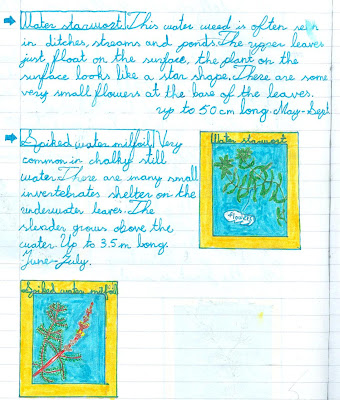 Water starwort This water weed is often seen
in ditches, streams and ponds. The upper leaves
just float on the surface, the plant on the
surface looks like a star shape. There are some
very small flowers at the base of the leaves.
up to 50 cm long. May-Sept.
Spiked water milfoil Very
common in chalky still
water. There are many small
invertebrates shelter on the
underwater leaves. The
slender grows above the
water. Up to 3.5m long.
June-July.
Water starwort
flowers
Spiked water milfoil